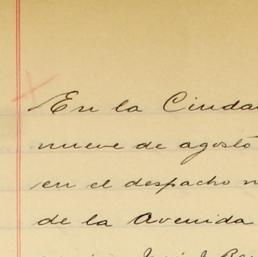 En la Ciudad
nueve de agosto
en el despacho
de la Avenida